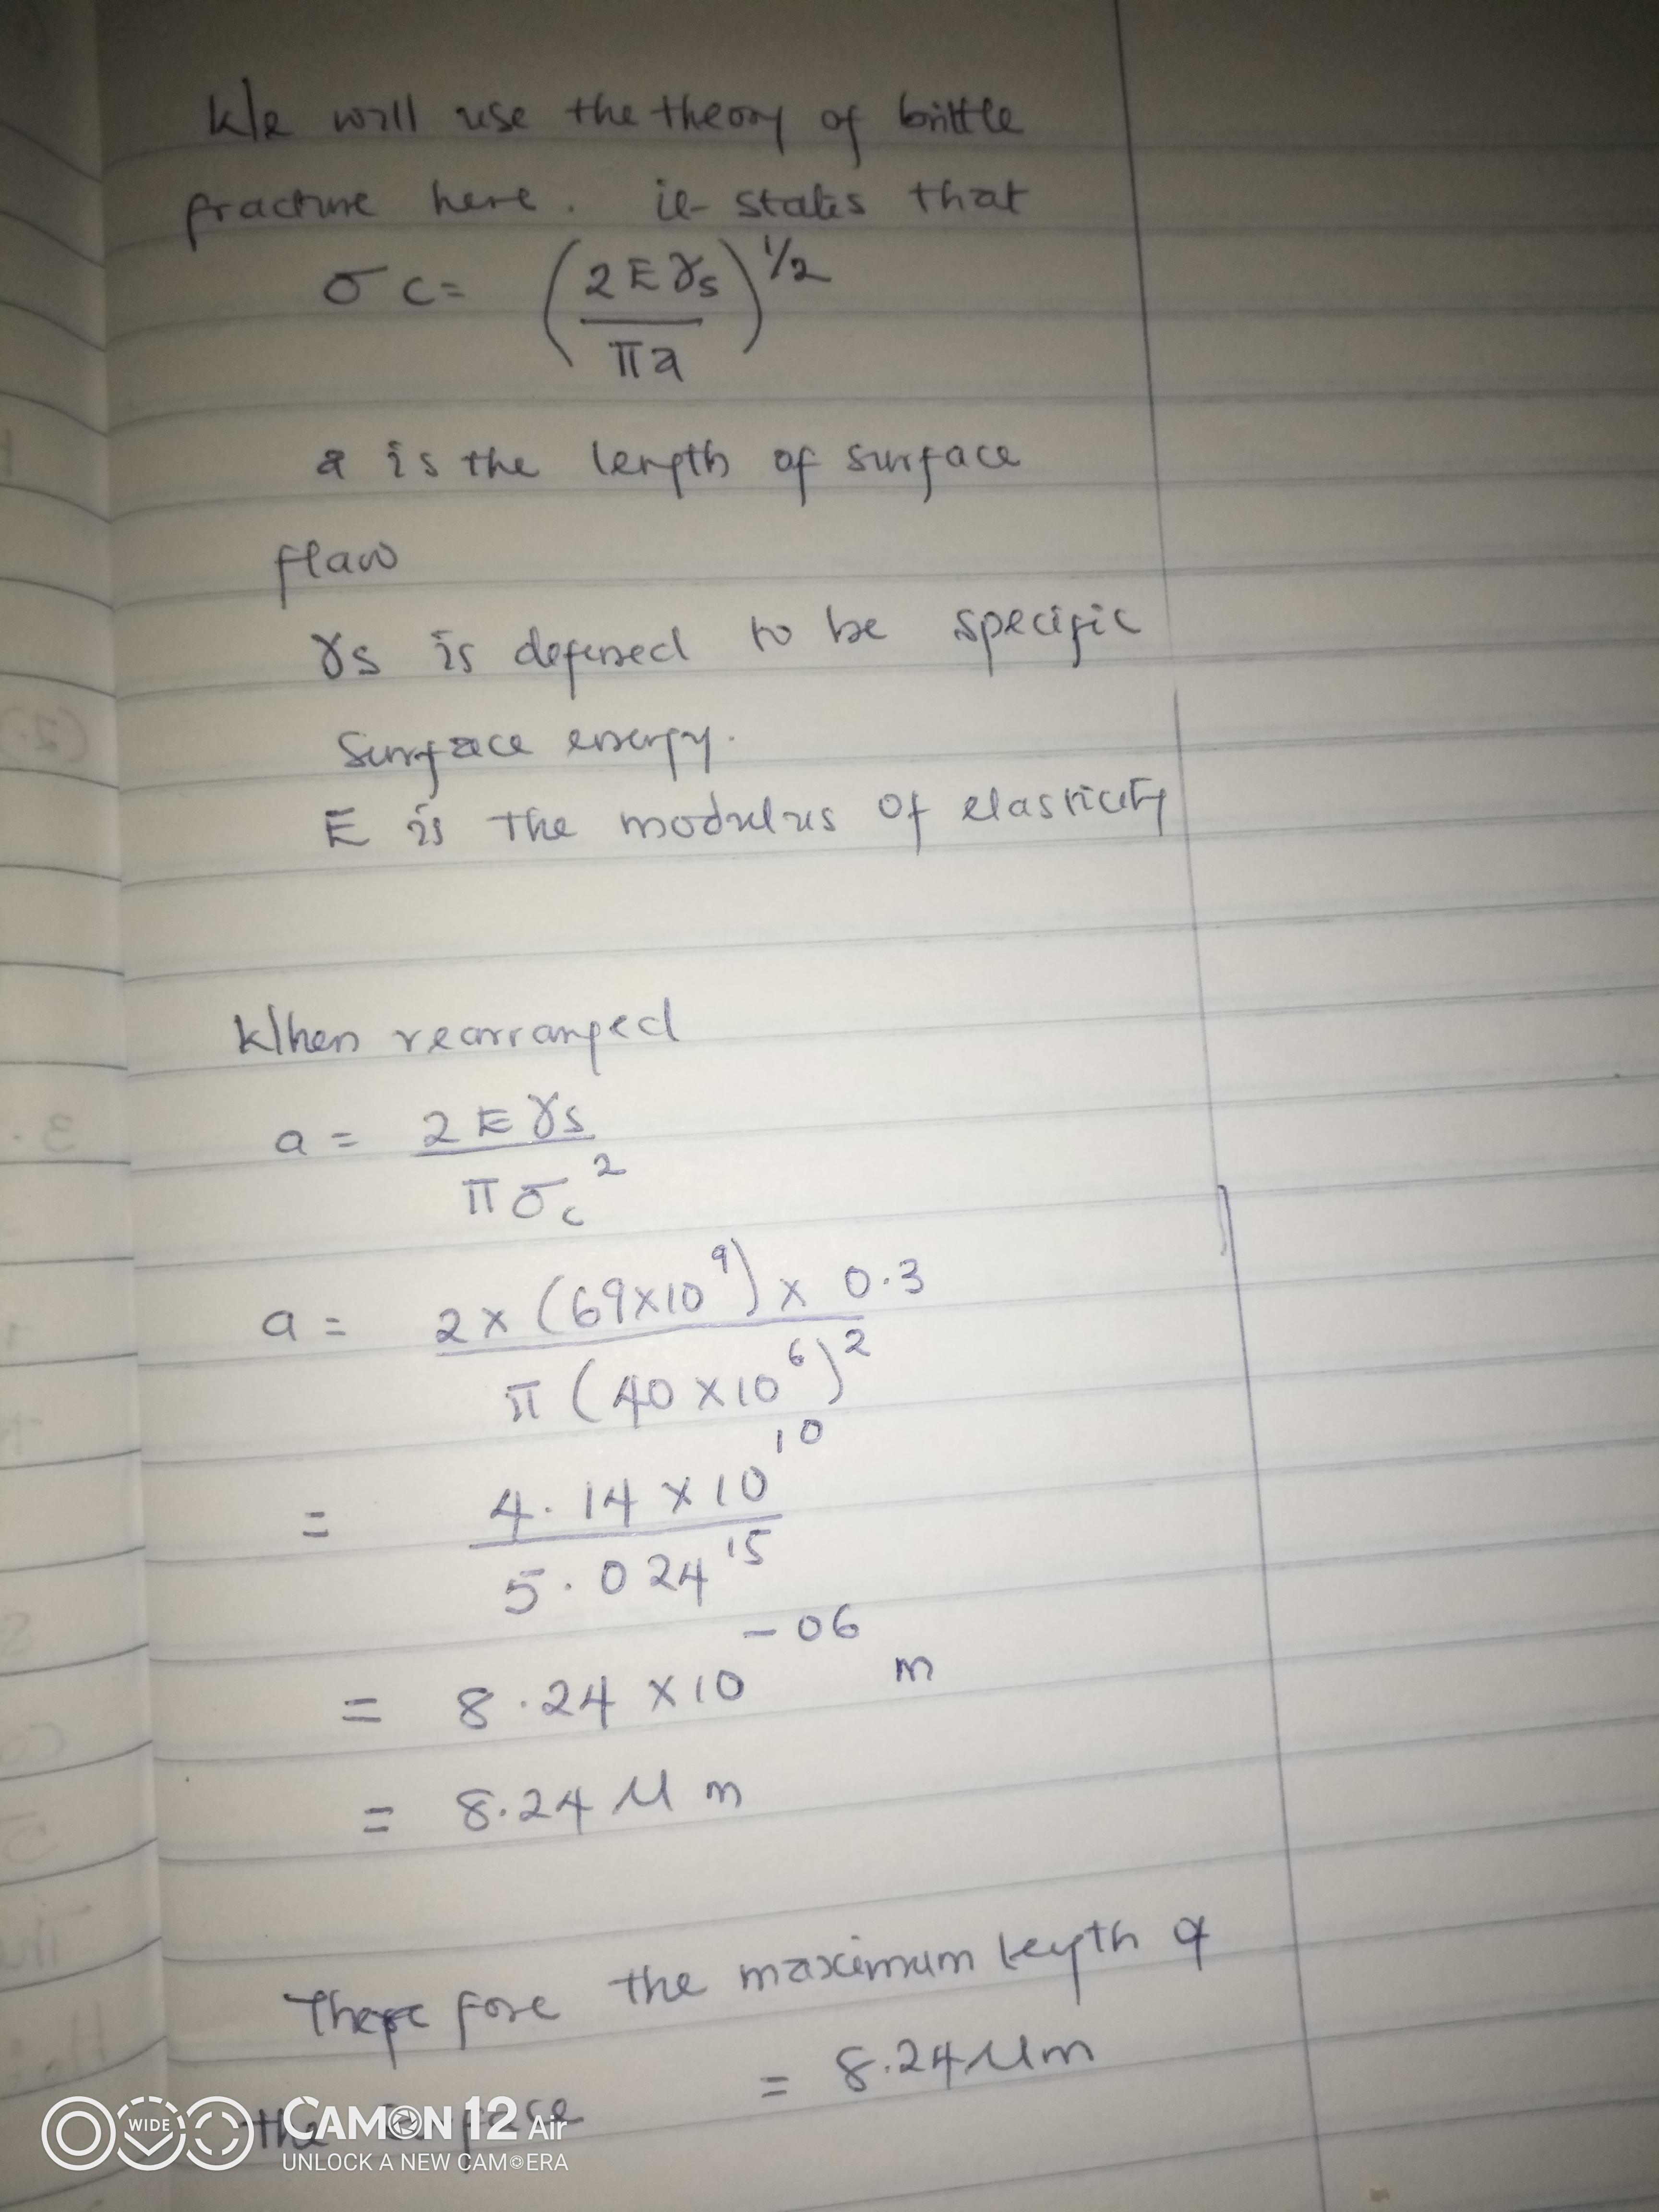 We will use the theory of brittle
fracture here. it states that
σc = (2Eγs / πa)^1/2
a is the length of surface
flaw
γs is defined to be specific
surface energy.
E is the modulus of elasticity
When rearranged
a = 2Eγs / πσc^2
a = 2×(69×10^9)×0.3 / π(40×10^6)^2
= 4.14×10^10 / 5.024^15
= 8.24×10^-06 m
= 8.24 μm
Therefore the maximum length of
the surface = 8.24 μm
WIDE
CAMON 12 Air
UNLOCK A NEW CAMERA